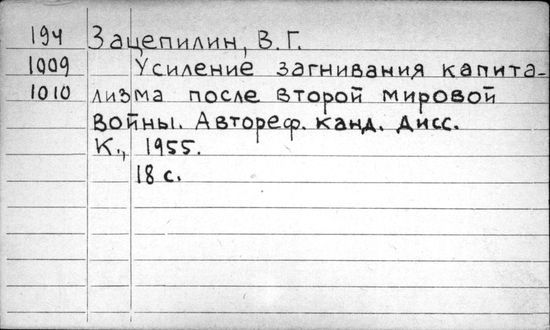 194 Зацепилин, В.Г.
1009 Усиление загнивания капита-
1010 лизма после второй мировой
войны. Автореф. канд. дисс.
К., 1955.
18 с.